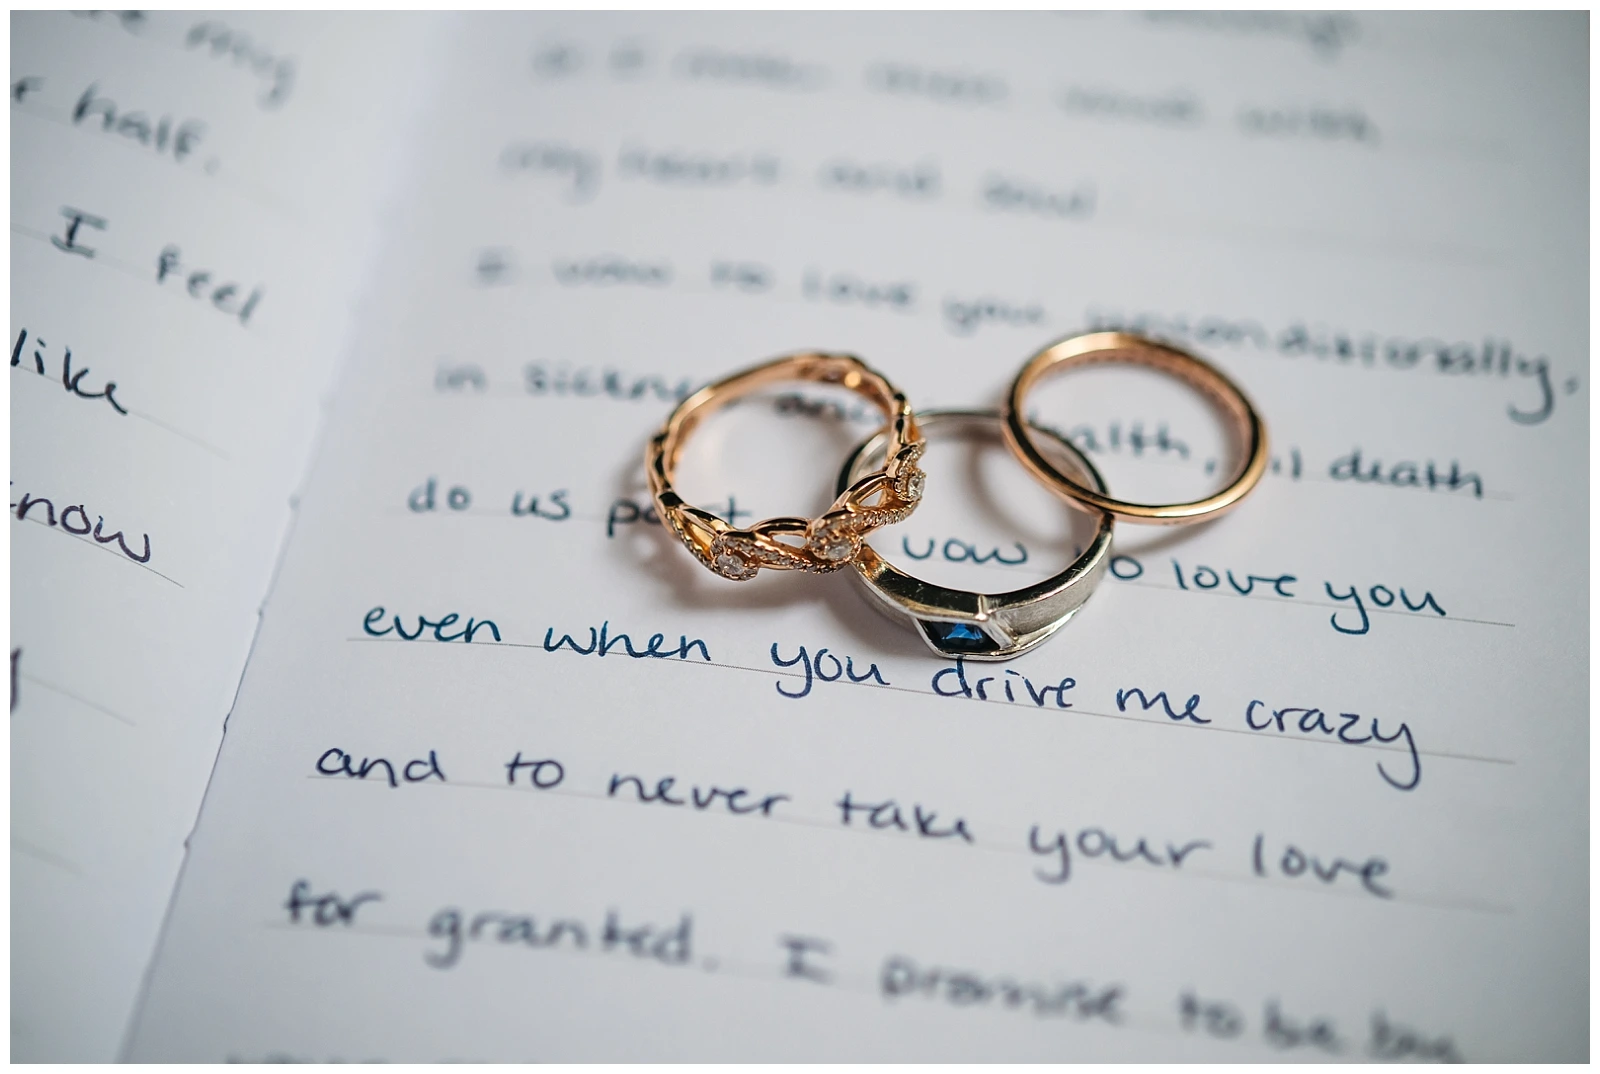 my
half.
I feel
like
know
my heart and soul
I vow to love you unconditionally,
in sickness and health, til death
do us part vow to love you
even when you drive me crazy
and to never take your love
for granted. I promise to be